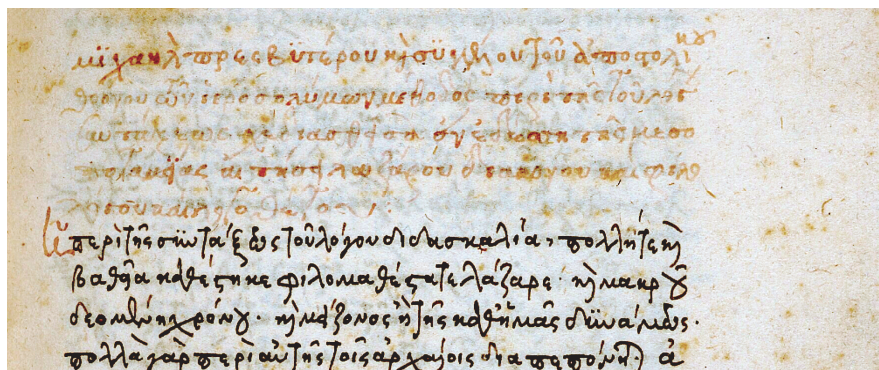 μϊχαὴλ πρεσβϋτέρου καὶ σϋγγέλου τοῦ ἀποστολικοῦ
θρόνου τῶν ἱεροσολύμων μέθοδος περὶ τῆς τοῦ λόγου
συντάξεως σχεδιασθεῖσα ἐν τῆς μεσο
ποταμίας αἰτήσει λαζάρου διακόνου καὶ φιλο
Ἡ περὶ τῆς σϋντάξεως τοῦ λόγου διδασκαλία, πολλή τε καὶ
βαθεῖα καθέστηκε φιλομαθέστατε λάζαρε· καὶ μακροῦ
δεομένη χρόνου· καὶ μείζονος ἢ τῆς καθ' ἡμᾶς δϋνάμεως·
πολλὰ γὰρ περὶ αὐτῆς τοῖς ἀρχαίοις διαπεπόνηται ἀ